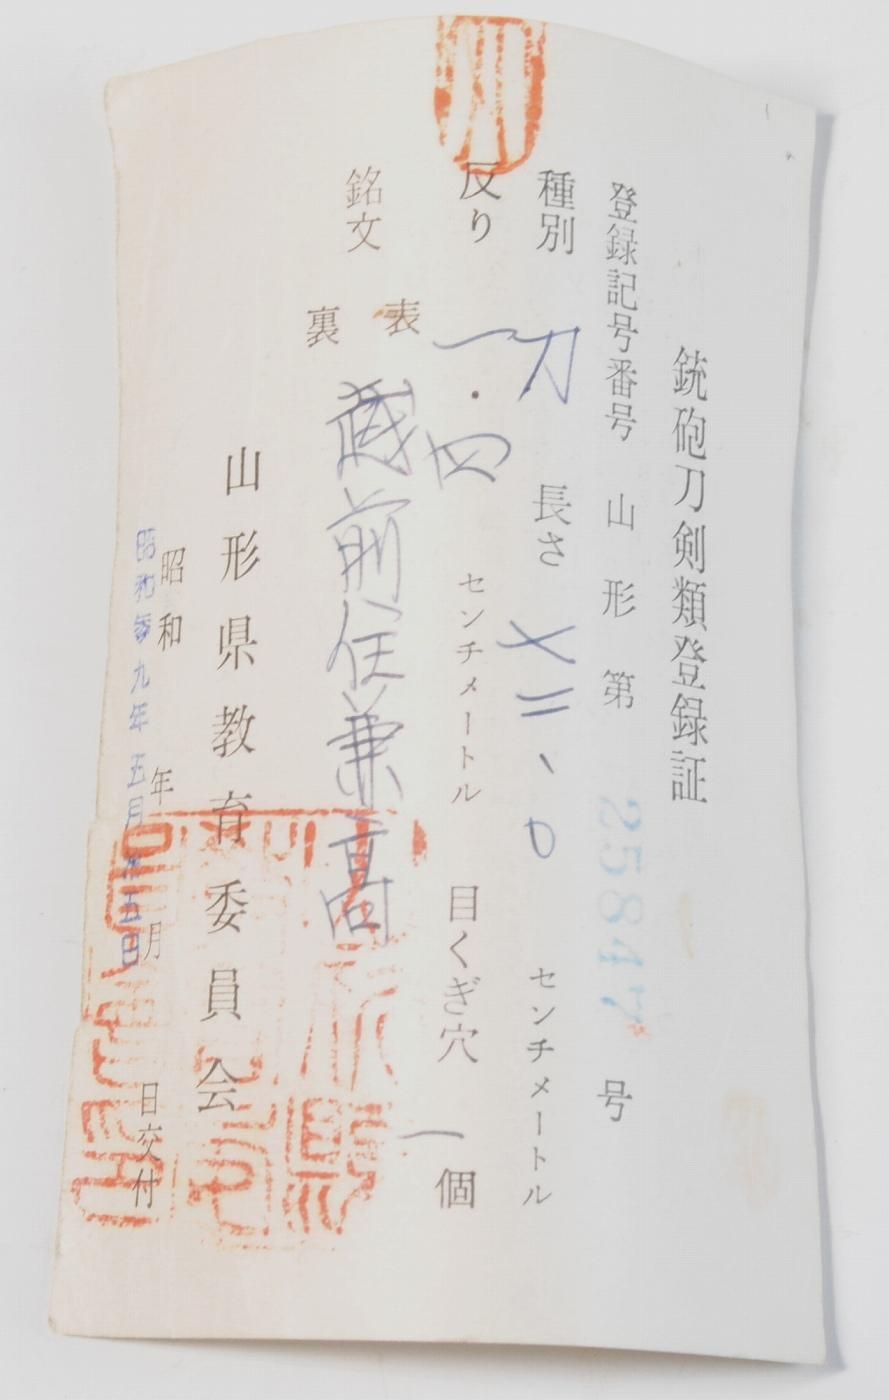 銃砲刀剣類登録証
登録記号番号 山形第 25847 号
種別 刀 長さ 七二、〇 センチメートル
反り 一・四 センチメートル 目くぎ穴 一 個
銘文 表 前住兼高
裏
山形県教育委員会
昭和 年 月 日交付
昭和参九年五月 五日